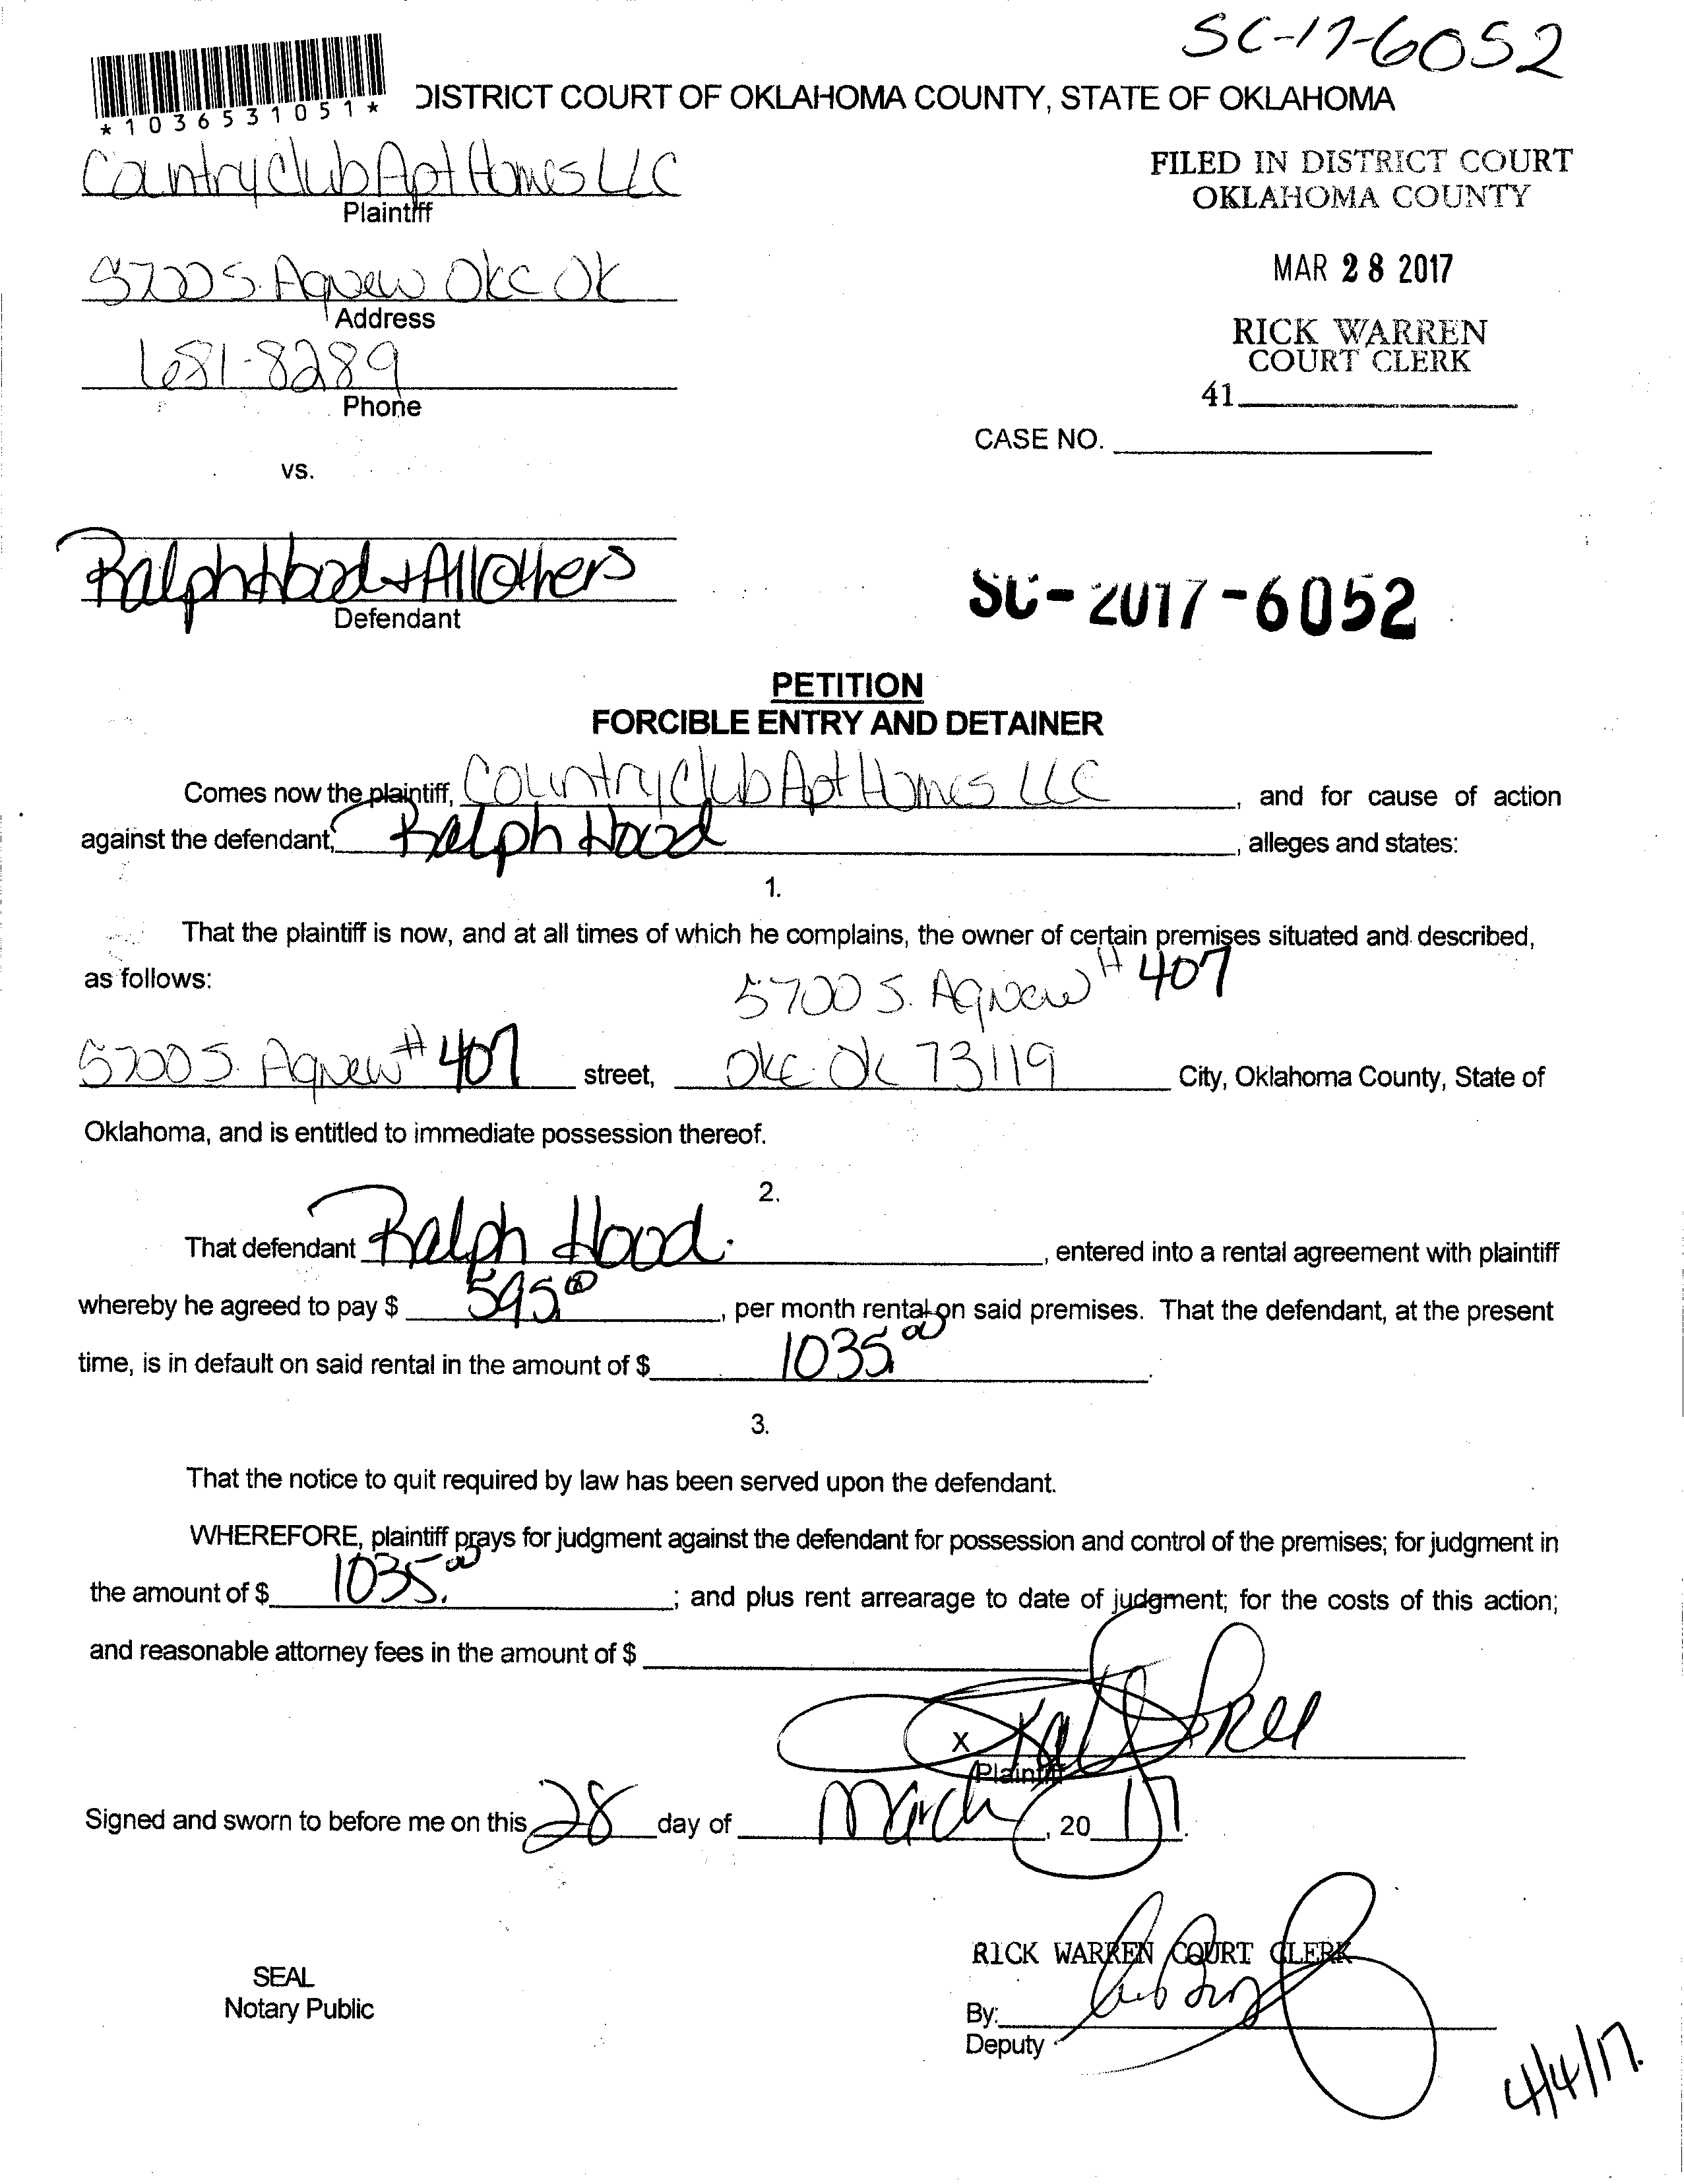 SC-17-6052
*1036531051*
DISTRICT COURT OF OKLAHOMA COUNTY, STATE OF OKLAHOMA
Country Club Apt Homes LLC
Plaintiff
FILED IN DISTRICT COURT
OKLAHOMA COUNTY
5700 S. Agnew Okc Ok
Address
MAR 28 2017
681-8289
Phone
RICK WARREN
COURT CLERK
41
CASE NO.
vs.
Ralph Hood + All Others
Defendant
SC-2017-6052
PETITION
FORCIBLE ENTRY AND DETAINER
Comes now the plaintiff, Country Club Apt Homes LLC, and for cause of action
against the defendant, Ralph Hood, alleges and states:
1.
That the plaintiff is now, and at all times of which he complains, the owner of certain premises situated and described,
as follows:
5700 S. Agnew # 407
5700 S. Agnew # 407 street, Okc Ok 73119 City, Oklahoma County, State of
Oklahoma, and is entitled to immediate possession thereof.
2.
That defendant Ralph Hood., entered into a rental agreement with plaintiff
whereby he agreed to pay $ 595.00, per month rental on said premises. That the defendant, at the present
time, is in default on said rental in the amount of $ 1035.00.
3.
That the notice to quit required by law has been served upon the defendant.
WHEREFORE, plaintiff prays for judgment against the defendant for possession and control of the premises; for judgment in
the amount of $ 1035.00; and plus rent arrearage to date of judgment; for the costs of this action;
and reasonable attorney fees in the amount of $
X
Plaintiff
Signed and sworn to before me on this 28 day of March, 20 17.
RICK WARREN COURT CLERK
SEAL
Notary Public
By:
Deputy
4/4/17.